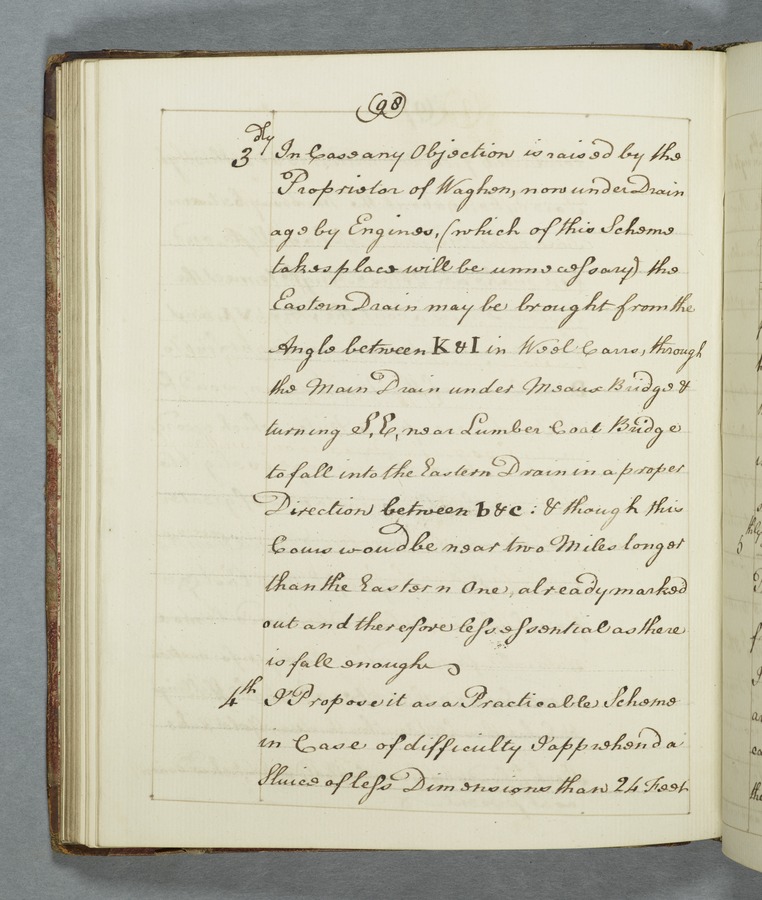 (98)
3dly In Case any Objection is raised by the
Proprietor of Waghen, now under Drain
age by Engines, (which of this Scheme
takes place will be unnecessary) the
Eastern Drain may be brought from the
Angle between K & I in Weel Carrs, through
the Main Drain under Meaux Bridge &
turning S, E, near Lumber Coat Bridge
to fall into the Eastern Drain in a proper
Direction between b & c : & though this
Cours woud be near two Miles longer
than the Eastern One, already marked
out and therefore less essential as there
is fall enough
4th I Propose it as a Practicable Scheme
in Case of difficulty I apprehend a
Sluice of less Dimensions than 24 Feet